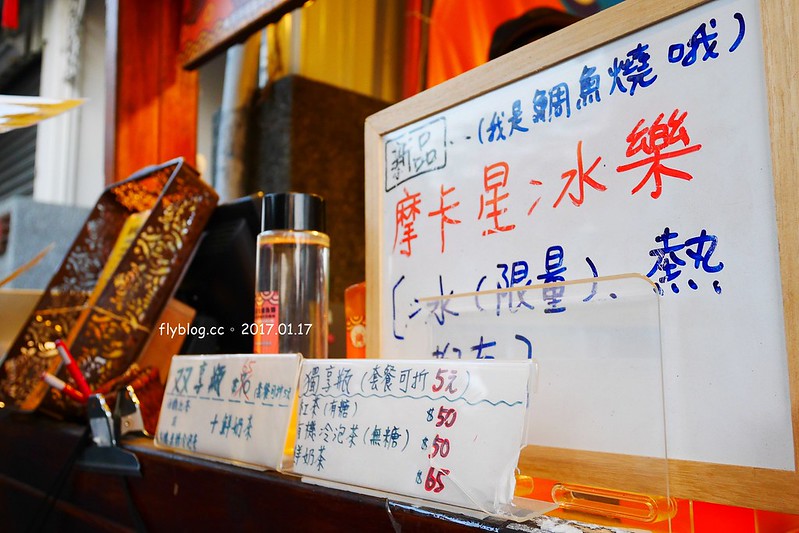 新品..(我是鯛魚燒哦)
摩卡星冰樂
[冰(限量)、熱
都有]
flyblog.cc。2017.01.17
双享瓶
+鮮奶茶
獨享瓶(套餐可折5元)
紅茶(有糖) $50
有機冷泡茶(無糖) $50
鮮奶茶 $65